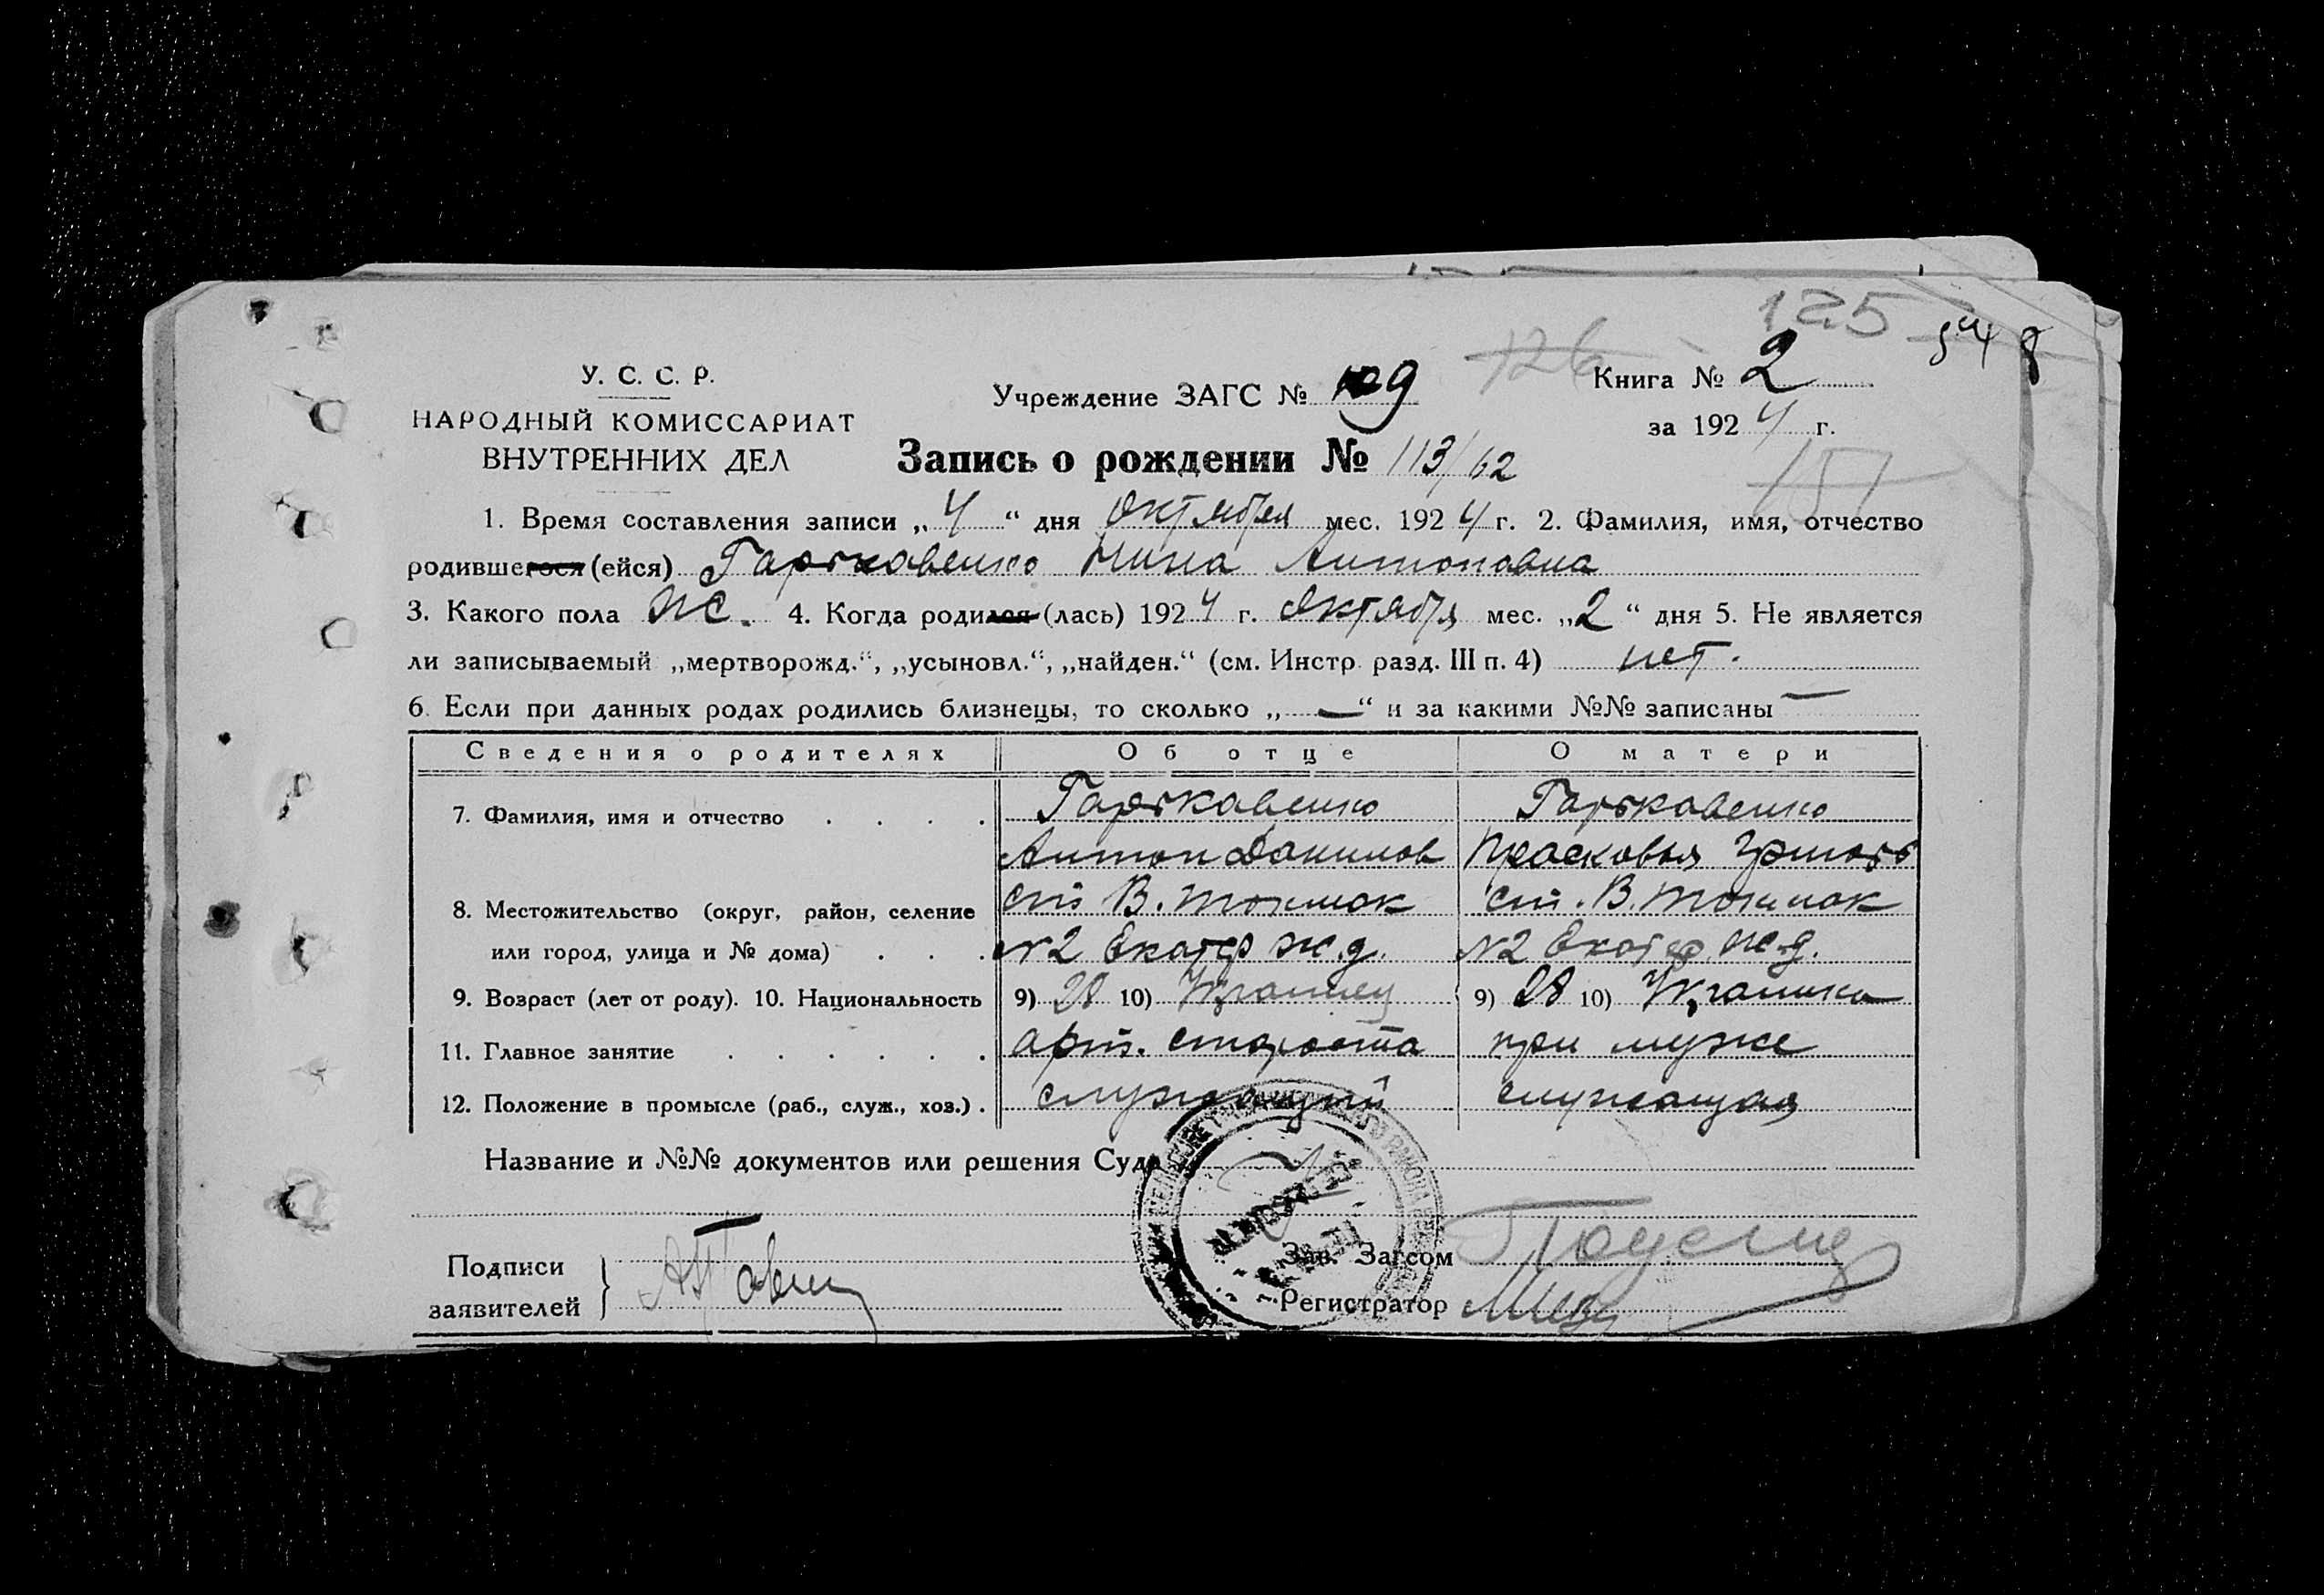 125
548
У. С. С. Р.
НАРОДНЫЙ КОМИССАРИАТ
ВНУТРЕННИХ ДЕЛ
Учреждение ЗАГС № 109
126
Книга № 2
за 1924 г.
151
Запись о рождении № 113/62
1. Время составления записи „4“ дня Октября мес. 1924 г. 2. Фамилия, имя, отчество
родившегося (ейся) Гарькавенко Нина Антоновна
3. Какого пола ж. 4. Когда родился (лась) 1924 г. Октября мес. „2“ дня 5. Не является
ли записываемый „мертворожд.“, „усыновл.“, „найден.“ (см. Инстр. разд. III п. 4) нет.
6. Если при данных родах родились близнецы, то сколько „—“ и за какими №№ записаны —
Сведения о родителях Об отце О матери
7. Фамилия, имя и отчество . . . . Гарькавенко Гарькавенко
Антон Данилов Прасковья
8. Местожительство (округ, район, селение ст В. Токмак ст. В. Токмак
или город, улица и № дома) . . . №2 Екатер ж.д. №2 Екатер. ж.д.
9. Возраст (лет от роду). 10. Национальность 9) 28 10) Украинец 9) 28 10) Украинка
11. Главное занятие . . . . . . арт. староста при муже
12. Положение в промысле (раб., служ., хоз.) . служащий служащая
Название и №№ документов или решения Суда
Подписи
заявителей
Зав. Загсом
Регистратор